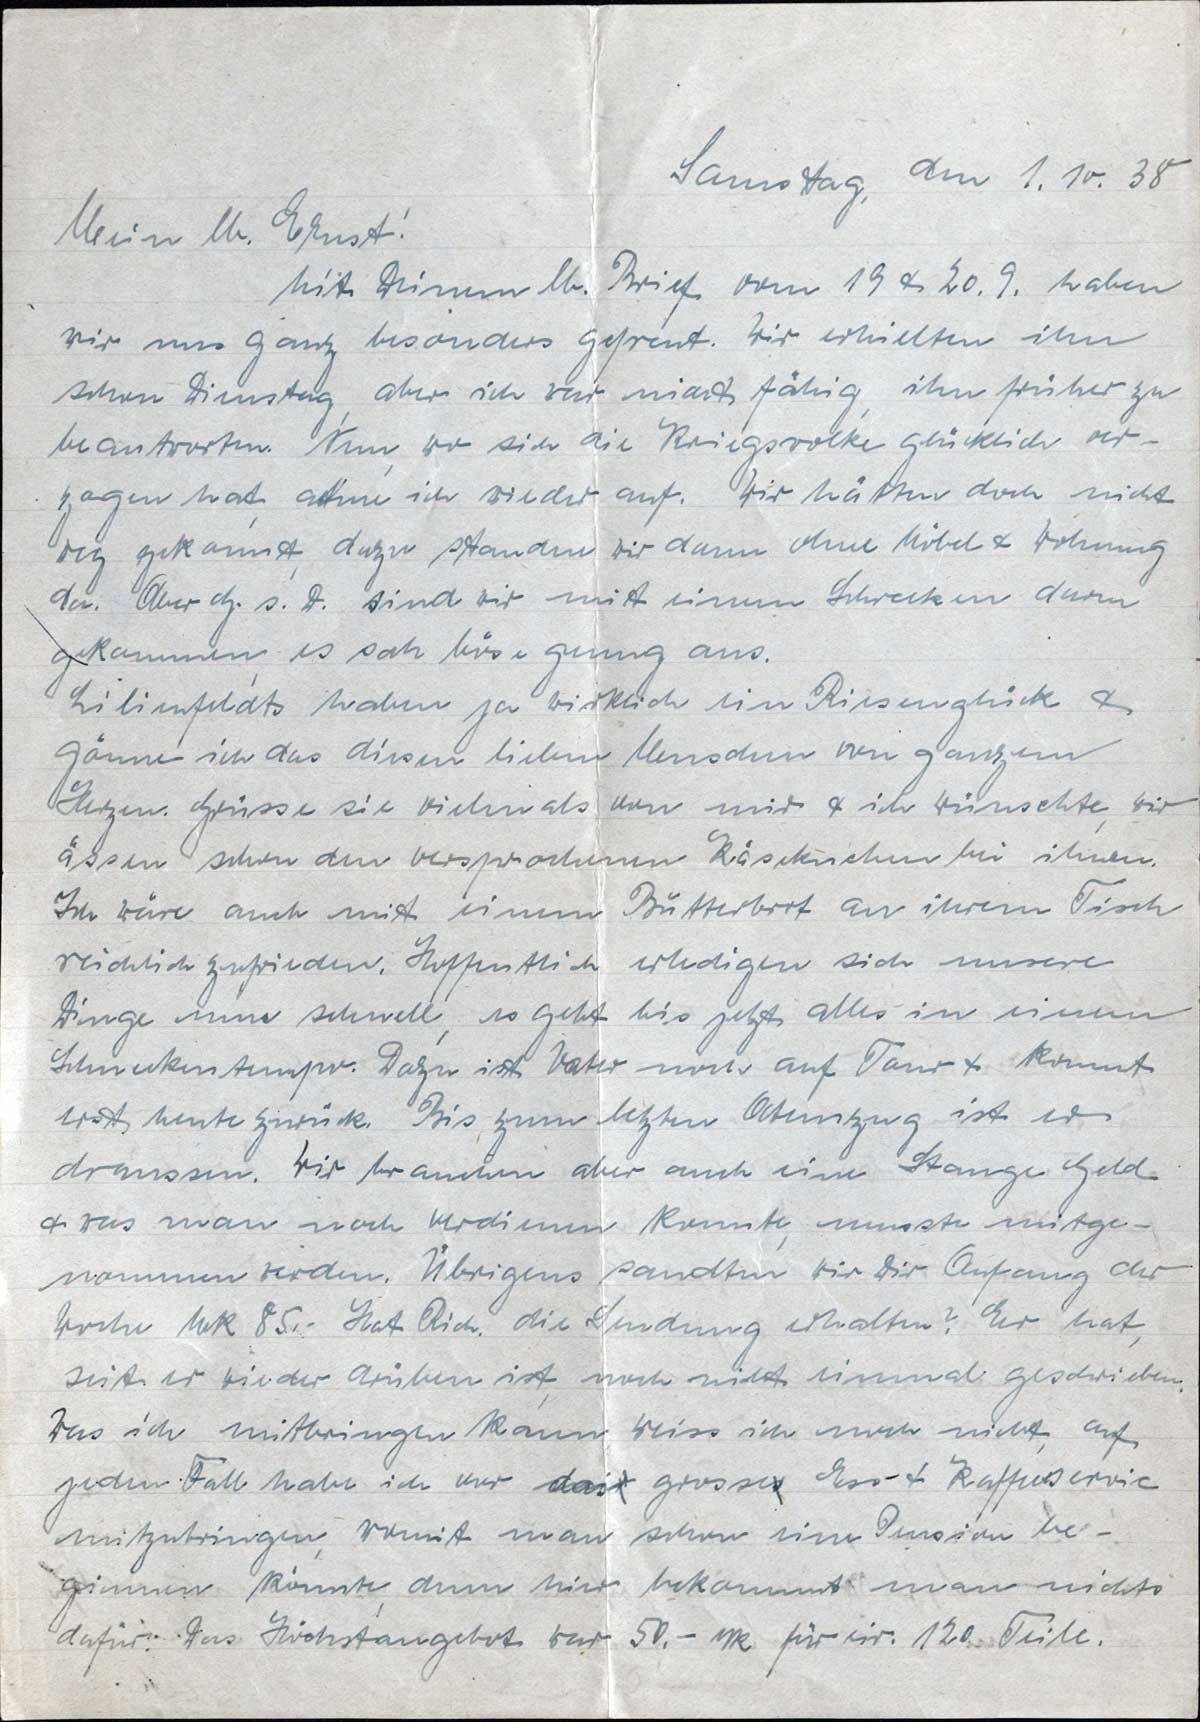 Samstag, den 1.10.38
Mein lb. Ernst!
Mit Deinem lb. Brief vom 19 & 20.9. haben
wir uns ganz besonders gefreut. Wir erhielten ihn
schon Dienstag, aber ich war nicht fähig, ihn früher zu
beantworten. Nun, wo sich die Kriegswolke glücklich ver-
zogen hat, atme ich wieder auf. Wir hätten doch nicht
weg gekonnt, dazu standen wir dann ohne Möbel & Wohnung
da. Aber G. s. D. sind wir mit einem Schrecken davon
gekommen es sah böse genug aus.
Lilienfeldts haben ja wirklich ein Riesenglück &
gönne ich das diesen lieben Menschen von ganzem
Herzen. Grüsse sie vielmals von mir & ich wünschte, wir
ässen schon den versprochenen Käsekuchen bei ihnen.
Ich wäre auch mit einem Butterbrot an ihrem Tisch
reichlich zufrieden. Hoffentlich erledigen sich unsere
Dinge nun schnell, es geht bis jetzt alles in einem
Schneckentempo. Dazu ist Vater noch auf Tour & kommt
erst heute zurück. Bis zum letzten Atemzug ist er
draussen. Wir brauchen aber auch eine Stange Geld
& was man noch verdienen konnte, musste mitge-
nommen werden. Übrigens sandten wir Dir Anfang der
Woche Mk 85.- Hat Rich. die Sendung erhalten? Er hat,
seit er wieder drüben ist, noch nicht einmal geschrieben.
Was ich mitbringen kann weiss ich noch nicht, auf
jeden Fall habe ich vor grosses Ess- & Kaffeeservic
mitzubringen, womit man schon eine Pension be-
ginnen könnte, denn hier bekommt man nichts
dafür. Das Höchstangebot war 50.- Mk für cir. 120 Teile.